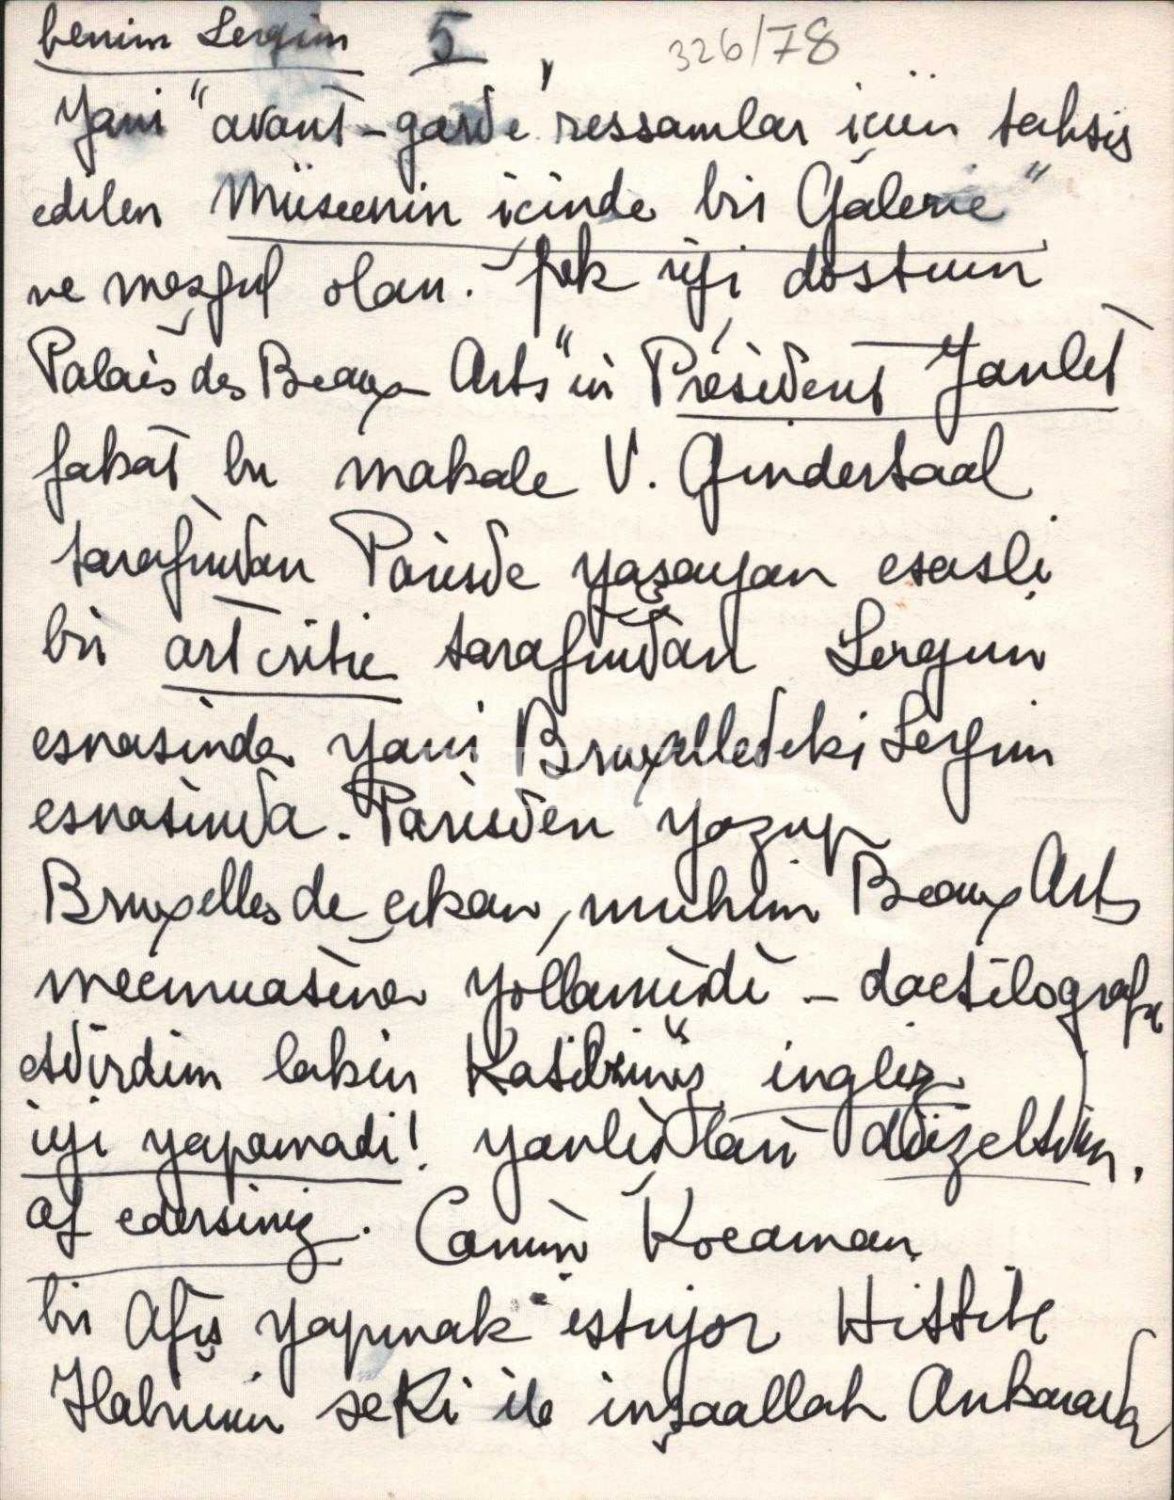 benim Sergim 5 326/78
Yani "avant-garde" ressamlar için tahsis
edilen Müseenin icinde bir Galerie"
ve meşgul olan. Pek iyi dostum
Palais des Beaux Arts"ın Président Janlet
fakat bu makale V. Gindertaal
tarafından Parisde yaşayan esasli
bir art critic tarafından Sergim
esnasinda yani Bruxelledeki Sergim
esnasında. Parisden yazup
Bruxelles de çıkan, muhim Beaux Arts
mecmuasine yollamişdi - dactilografi
etdirdim lakin Katibimiz ingliz
iyi yapamadi! yanlişları düzeltdim,
af edersiniz. Canım Kocaman
bir Afiş yapmak istiyor Hittite
Halıniin şekli ile inşaallah Ankarada